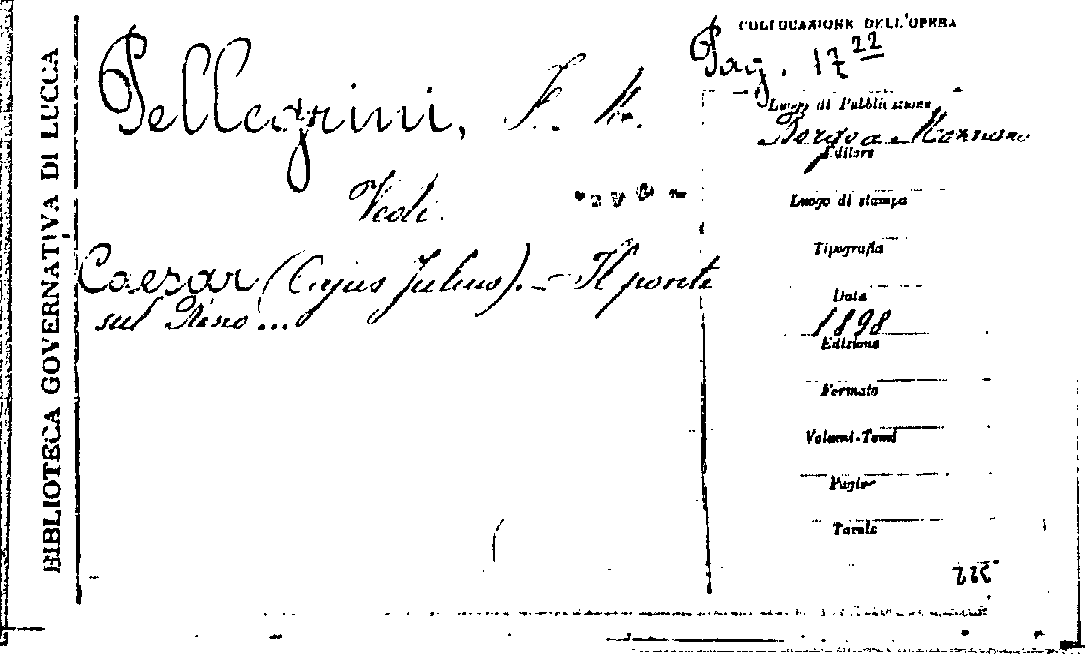 BIBLIOTECA GOVERNATIVA DI LUCCA
Pellegrini, F. M.
Vedi
Caesar (Cajus Julius). - Il ponte
sul Reno...
COLLOCAZIONE DELL'OPERA
Pag. 17 22
Luogo di Pubblicazione
Borgo a Mozzano
Editore
Luogo di stampa
Tipografia
Data
1898
Edizione
Formato
Volumi-Tomi
Pagine
Tavole